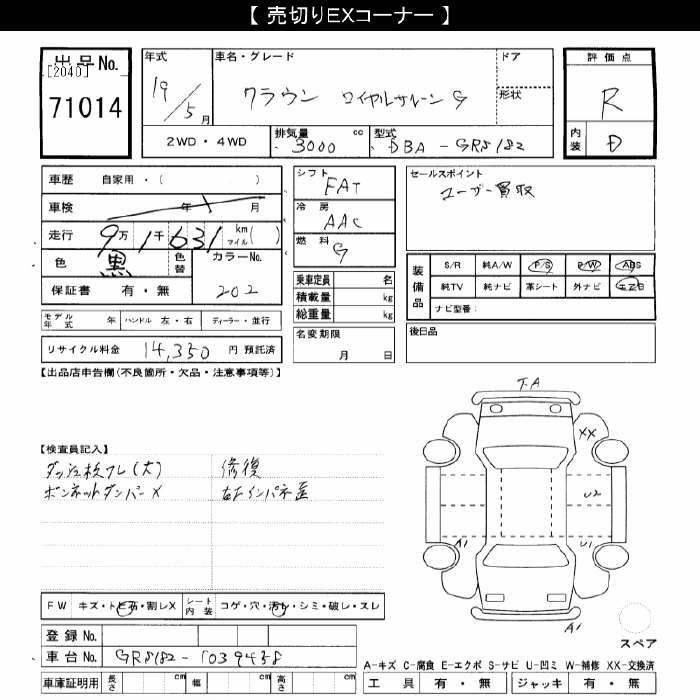 【 売切りEXコーナー 】
出品No.
[2040]
71014
年式
19/5月
車名・グレード
クラウン ロイヤルサルーンG
ドア
形状
2WD・4WD
排気量 3000 cc
型式 DBA-GRS182
評価点
R
内装 D
車歴 自家用・( )
車検 年 月
走行 9万1千631 km マイル( )
色 黒 色替 カラーNo. 202
保証書 有・無
モデル年式 年 ハンドル 左・右 ディーラー・並行
リサイクル料金 14,350 円 預託済
シフト FAT
冷房 AAC
燃料 G
乗車定員 名
積載量 kg
総重量 kg
名変期限
月 日
セールスポイント
ユーザー買取
装備品
S/R 純A/W P/S P/W ABS
純TV 純ナビ 革シート 外ナビ エアB
ナビ型番:
後日品
【出品店申告欄(不良箇所・欠品・注意事項等)】
【検査員記入】
ダッシュ板ワレ(大) 修復
ボンネットダンパーX 右Fインパネ歪
F.A
XX
U2
A1
U1
A1
スペア
FW キズ・トビ石・割レX シート内装 コゲ・穴・汚レ・シミ・破レ・スレ
登録No.
車台No. GRS182-1039438
車庫証明用 長さ cm 幅 cm 高さ cm
A-キズ C-腐食 E-エクボ S-サビ U-凹ミ W-補修 XX-交換済
工具 有・無 ジャッキ 有・無